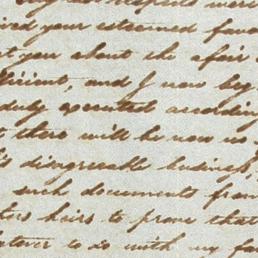 my respects were
your esteemed favo
t you about the afair
fficient, and I now beg
duly executed according
t there will be now no
's disagreeable business,
such documents from
tors heirs to prove that
atever to do with my fa